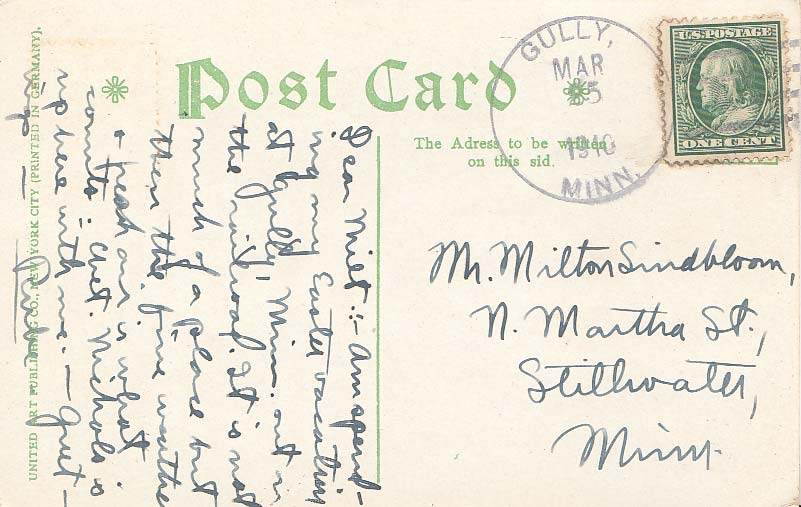 Post Card
The Adress to be written
on this sid.
GULLY,
MAR
5
1910
MINN.
U.S. POSTAGE
ONE CENT
Mr. Milton Lindbloom,
N. Martha St.,
Stillwater,
Minn.
Dear Milt:- Am spend-
ing my Easter vacation
at Gully, Minn. out on
the railroad. It is not
much of a place but
then the fine weather
+ fresh air is what
counts. Chet. Nichols is
up here with me. - Quiet -
UNITED ART PUBLISHING CO., NEW YORK CITY (PRINTED IN GERMANY).